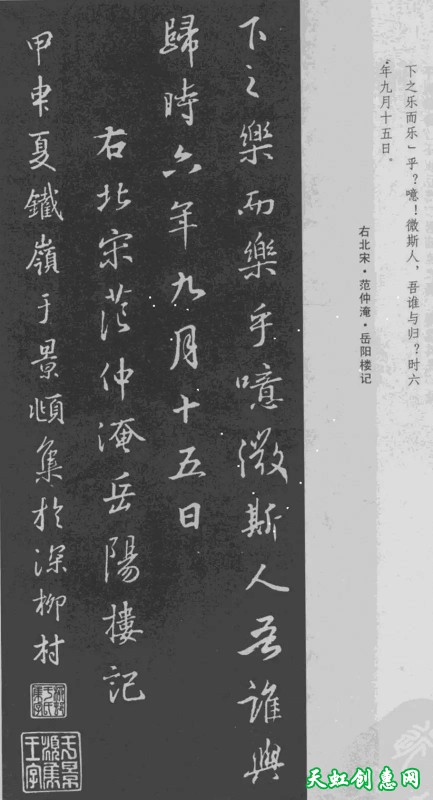 下之乐而乐」乎？噫！微斯人，吾谁与归？时六
年九月十五日。
右北宋·范仲淹·岳阳楼记
下之樂而樂乎噫微斯人吾誰與
歸時六年九月十五日
右北宋范仲淹岳陽樓記
甲申夏鐵嶺于景頫集於深柳村
于景頫集王字
天虹创惠网